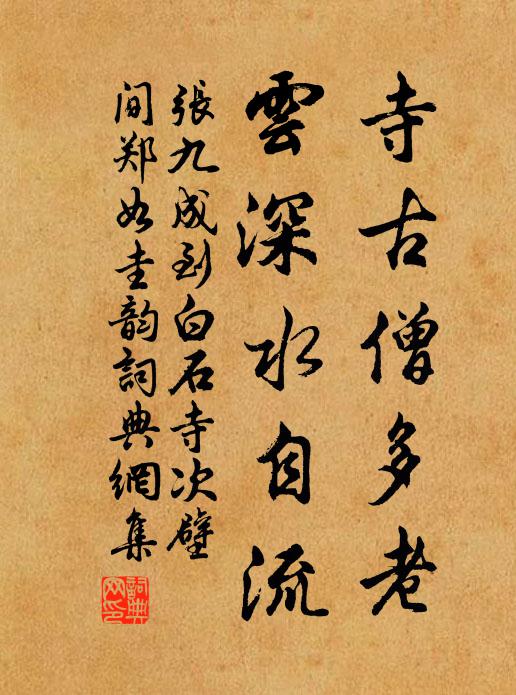 寺古僧多老
雲深水自流
張九成到白石寺次壁
間郑如圭韵詞典網集
詞典
网印